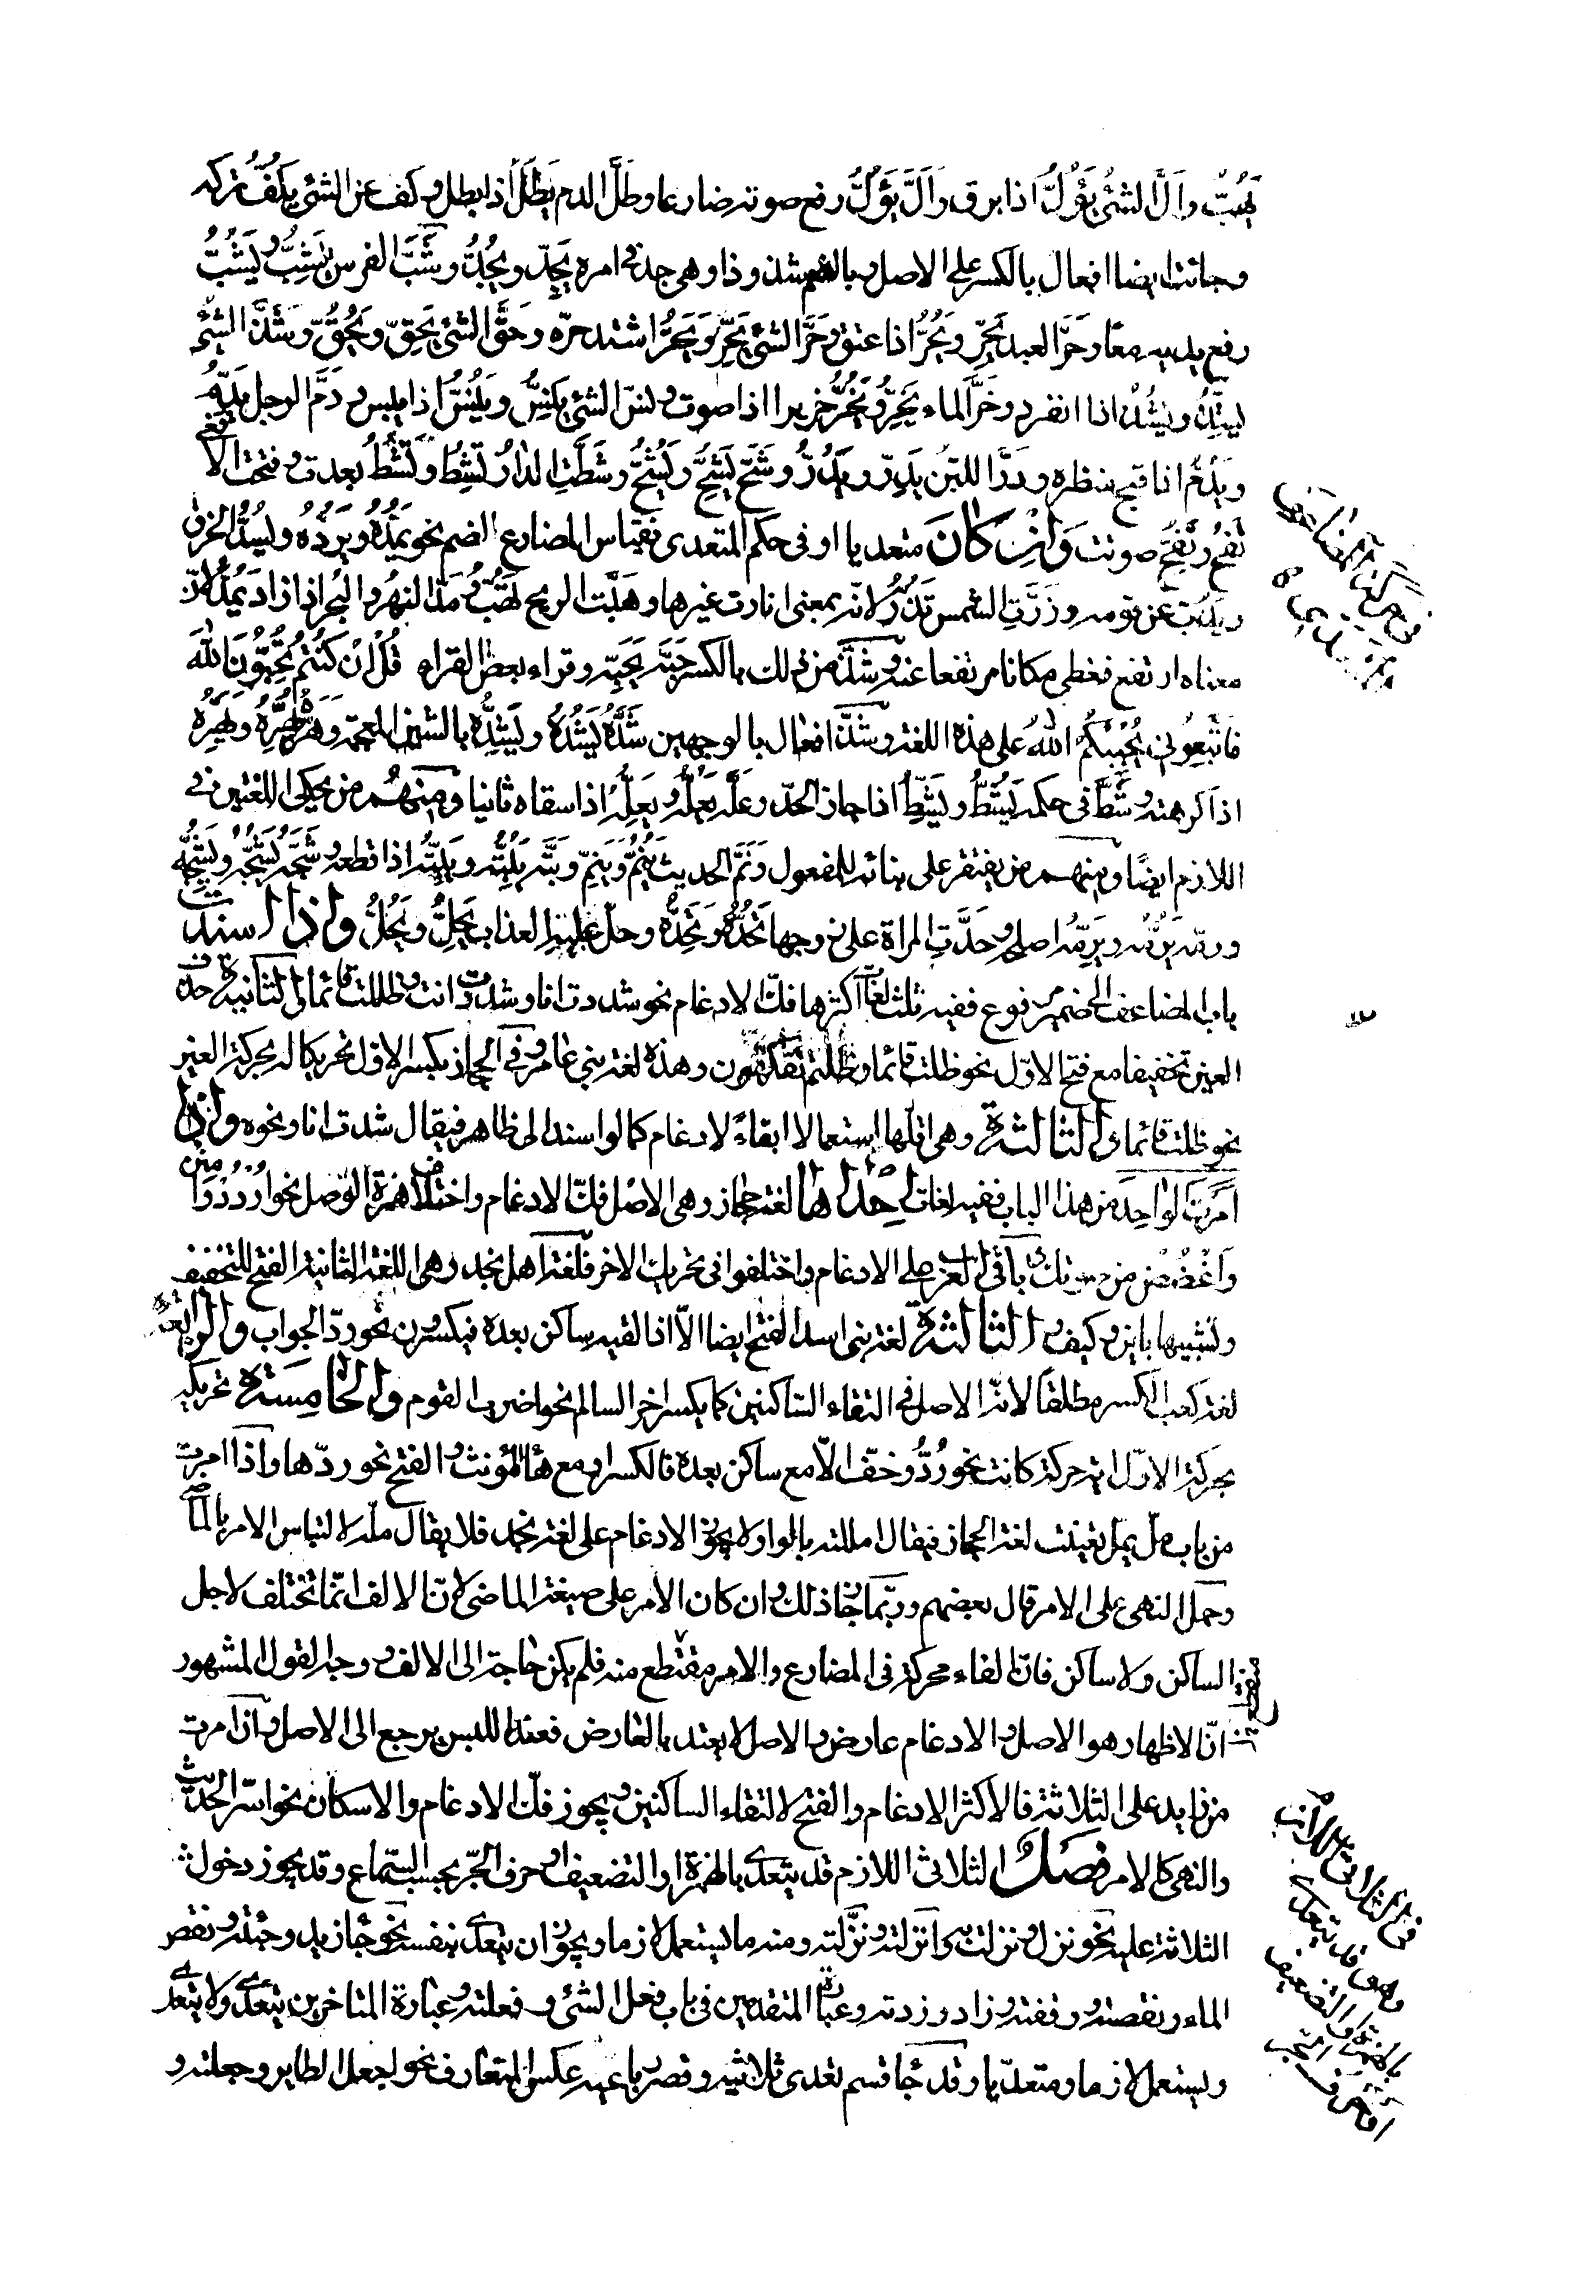 يَهُبُّ وأَلَّ الشئُ يَؤُلُّ اذا برق وأَلَّ يَؤُلُّ رفع صوته ضارعا وطَلَّ الدم يَطُلّ اذا بطل وكف عن الشئ يكُفُّ تركه
وجائت ايضا افعال بالكسر على الاصل وبالضم شذوذا وهى جد فى امره يَجِدّ ويَجُدُّ وشَبَّ الفرس يَشِبُّ ويَشُبُّ
رفع يديه معا وحَرَّ العبد يَحِرّ ويَحُرُّ اذا عتق وحَرَّ الشئ يَحِرّ ويَحُرُّ اشتد حرّه وحَقَّ الشئ يَحِقّ ويَحُقُّ وشَذَّ الشئ
يشِذُّ ويَشُذُّ اذا انفرد وخَرَّ الماء يَخِرُّ ويَخُرُّ خريرا اذا صوت ونسّ الشئ يَنِسُّ ويَنُسُّ اذا يبس ودَمَّ الرجل يَدِمُّ
ويَدُمُّ اذا قبح منظره ودَرَّ اللبن يَدِرّ ويَدُرُّ وشَحّ يَشِحُّ ويَشُحُّ وشَطَّتِ الدار تَشِطُّ وتَشُطُّ بعدت وفحت الأفعى
تَفُحُّ وتَفِحُّ صوتت وَاِنْ كَانَ متعديا او فى حكم المتعدى فقياس المضارع الضم نحو يَمُدُّهُ ويَرُدُّهُ ويَسُدُّ الخرق
ويَذُبّ عن قومه وذَرَّتِ الشمس تَذُرُّ لانه بمعنى انارت غيرها وهَبَّت الريح تَهُبُّ ومَدَّ النهرُ والبحر اذا زاد يَمُدُّ لانّ
معناه ارتفع فغطى مكانا مرتفعا عنه وشَذَّ من ذلك بالكسر حَبَّه يَحِبّه وقراء بعض القراء قُلْ اِنْ كُنْتُمْ تُحِبُّونَ اللهَ
فاتَّبِعُونى يُحْبِبْكُمُ اللهُ على هذه اللغة وشَذَّ افعال بالوجهين شَدَّهُ يَشُدُّهُ ويَشِدُّهُ بالشين المعجمة وهَرَّه يَهِرُّهُ ويَهُرُّهُ
اذا كرهته وشَطَّ فى حكمه يَشُطُّ ويَشِطُّ اذا جاز الحدّ وعَلَّه يَعُلُّهُ ويَعِلُّهُ اذا سقاه ثانيا ومنهم من يحكى اللغتين فى
اللازم ايضًا ومنهم من يفتقر على بنائه للمفعول ونَمَّ الحديث يَنُمُّ ويَنِمّ وبَتَّه يَبُتُّه ويَبِتُّهُ اذا قطعه وشَجَّه يَشُجُّه ويَشِجُّه
ورمّه يَرُمُّه ويَرِمُّه اصلحه وحَدَّتِ المراة على زوجها تَحُدُّ وتَحِدُّ وحلّ عليه العذاب يَحِلُّ ويَحُلُّ واذا اسندت
باب المضاعف الى ضمير مرفوع ففيه ثلث لغات اكثرها فكّ الادغام نحو شددت انا وشددت انت وظللت قائما الثانية حذف
العين تخفيفا مع فتح الاول نحو ظلت قائما وظلتم تفكهون وهذه لغة بنى عامر وفى الحجاز بكسر الاول تحريكا له بحركة العين
نحو ظلت قائما والثالثة وهى اقلها استعمالا ابقاءُ الادغام كما لو اسند الى ظاهر فيقال شدت انا ونحوه واذا
امرت الواحد من هذا الباب ففيه لغات احدٰها لغة حجاز وهى الاصل فكّ الادغام واختلاف همزة الوصل نحو اُرْدُدْ
واغْضُضْ من صوتك باقى العرب على الادغام واختلفوا فى تحريك الاخر فلغة اهل نجد وهى اللغة الثانية الفتح للتخفيف
وتشبيها باين وكيف والثالثة لغة بنى اسد الفتح ايضا الّا اذا لقيه ساكن بعده فيكسرون نحو ردّ الجواب والرابعة
لغة كعب الكسر مطلقا لانّه الاصل فى التقاء الساكنين كما يكسر اخر السالم نحو اضرب القوم والخامِسَة تحريكه
بحركة الاول اية حركة كانت نحو رُدُّ وخفّ الّا مع ساكن بعده فالكسر او مع هاء المؤنث فالفتح نحو ردّها واذا امرت
من باب ملّ يملّ تعينت لغة الحجاز فيقال املله بالواو ولا يجوز الادغام على لغة نجد فلا يقال ملّه لالتباس الامر بالماضى
وحمل النهى على الامر قال بعضهم وربّما جاز ذلك وان كان الامر على صيغة الماضى لانّ الالف انّما تختلف لاجل
الساكن ولا ساكن فانّ الفاء محركة فى المضارع والامر مقتطع منه فلم يكن حاجة الى الالف ووجه القول المشهور
انّ الاظهار هو الاصل والادغام عارض والاصل لا يعتد بالعارض فعند اللبس يرجع الى الاصل وان امرت
من مزيد على الثلاثة فالاكثر الادغام والفتح لالتقاء الساكنين ويجوز فكّ الادغام والاسكان نحو اسرّ الحديث
والنهى كالامر فصل الثلاثى اللازم قد يتعدى بالهمزة او التضعيف او حرف الجرّ بحسب السّماع وقد يجوز دخول
الثلاثة عليه نحو نزل ونزلت به وانزلته ونزّلته ومنه ما يستعمل لازما ويجوز ان يتعدى بنفسه نحو جاز يد وجئته ونقص
الماء ونقصته ووقفته وزاد وزدته وعبارة المتقدمين فى باب فعل الشئ وفعلته وعبارة المتاخرين يتعدى ولا يتعدى
ويستعمل لازما ومتعدّيا وقد جا قسم تعدى ثلاثيه وقصر رباعيه عكس المتعارف نحو اجفل الطاير وجفلته و
فى الثلاثى اللازم
وهو قد يتعدى
بالهمزة والتضعيف
او حرف الجر